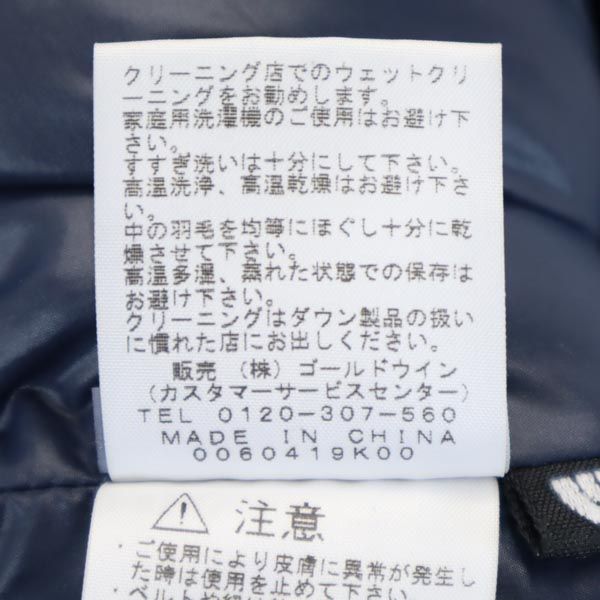 クリーニング店でのウェットクリ
ーニングをお勧めします。
家庭用洗濯機のご使用はお避け下
さい。
すすぎ洗いは十分にして下さい。
高温洗浄、高温乾燥はお避け下さ
い。
中の羽毛を均等にほぐし十分に乾
燥させて下さい。
高温多湿、蒸れた状態での保存は
お避け下さい。
クリーニングはダウン製品の扱い
に慣れた店にお出しください。
販売 (株) ゴールドウイン
(カスタマーサービスセンター)
TEL 0120-307-560
MADE IN CHINA
0060419K00
注意
・ご使用により皮膚に異常が発生し
た時は使用を止めて下さい。